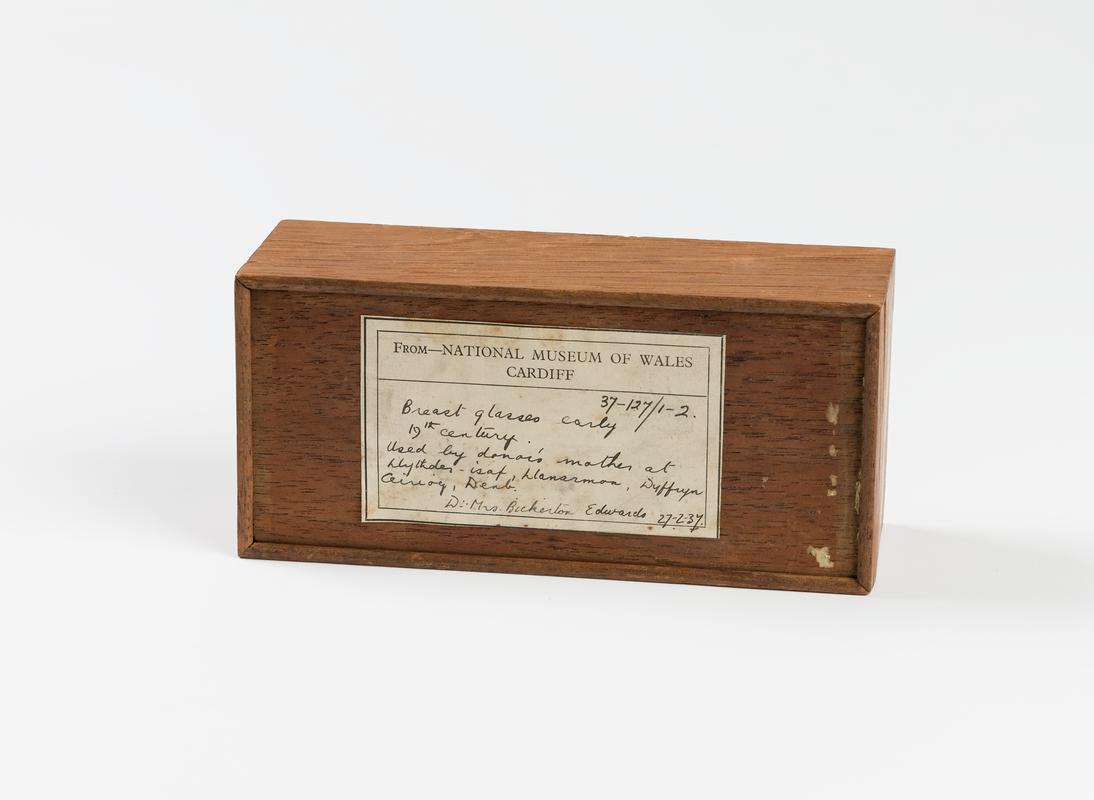 FROM—NATIONAL MUSEUM OF WALES
CARDIFF
37-127/1-2.
Breast glasses early
19th century.
Used by donor's mother at
isaf, Llanarmon, Dyffryn
Ceiriog, Denb.
D:- Mrs. Bickerton Edwards 27-2-37.